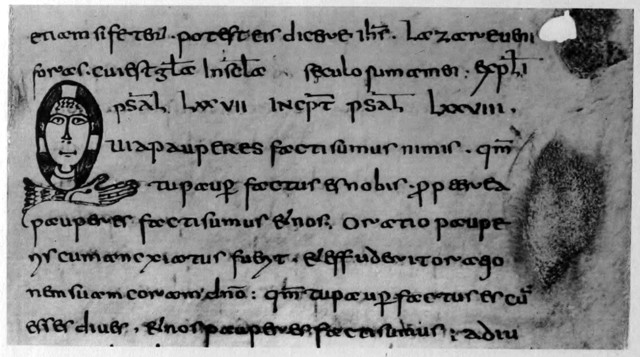 etiam si feteat. potest eis dicere ihs. Lazare veni
foras. cui est gla In scla seculorum amen. expli
psal LXXVII INCPT psal LXXVIII.
Quia pauperes facti sumus nimis. qm
tu pauper factus es nobis. propterea
pauperes facti sumus et nos. Oratio paupe
ris cum anxiatus fuerit. et effuderit oratio
nem suam coram dno: qm tu pauper factus es cu
esses dives, et nos pauperes facti sumus; adiu